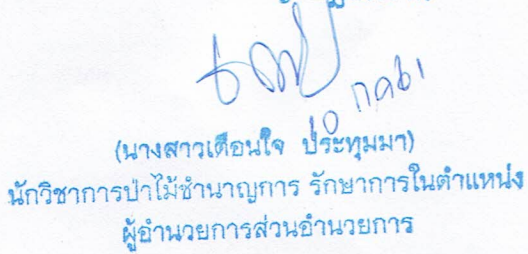 10 กค 61
(นางสาวเตือนใจ ประทุมมา)
นักวิชาการป่าไม้ชำนาญการ รักษาการในตำแหน่ง
ผู้อำนวยการส่วนอำนวยการ